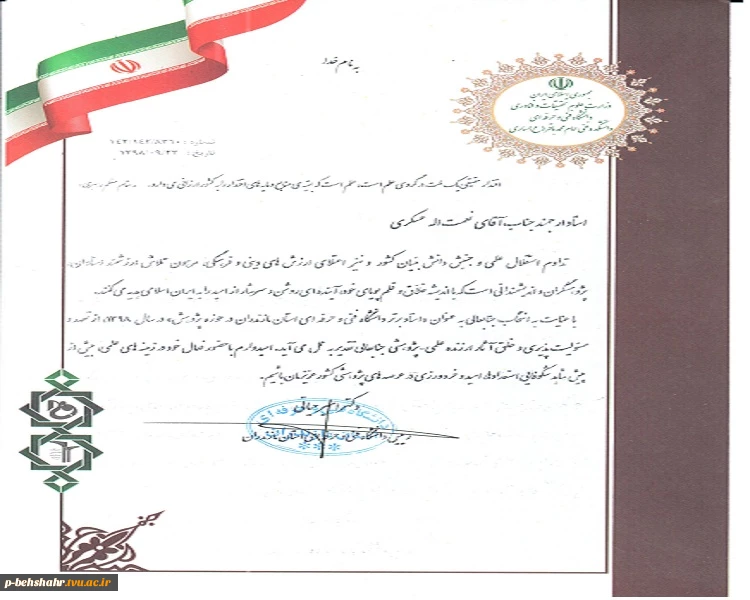 به نام خدا
جمهوری اسلامی ایران
وزارت علوم، تحقیقات و فناوری
دانشگاه فنی و حرفه ای
دانشکده فنی امام محمد باقر (ع) ساری
شماره : ۱۴۲۰۹۴۲/۸۳۶۰
تاریخ : ۱۳۹۸/۰۹/۲۳
اقتدار حقیقی یک ملت در گروی علم است، علم است که بقیه ی منابع و مایه های اقتدار را به کشور ارزانی می دارد. مقام معظم رهبری
استاد ارجمند جناب آقای نعمت اله عسکری
تداوم استقلال علمی و جنبش دانش بنیان کشور و نیز اعتلای ارزش های دینی و فرهنگی، مرهون تلاش ارزشمند استادان،
پژوهشگران و اندیشمندانی است که با اندیشه خلاق و قلم پویای خود، آینده ای روشن و سرشار از امید را به ایران اسلامی هدیه می کنند.
با عنایت به انتخاب جنابعالی به عنوان «استاد برتر دانشگاه فنی و حرفه ای استان مازندران در حوزه پژوهش» در سال ۱۳۹۸، از تعهد و
مسئولیت پذیری و خلق آثار ارزنده علمی-پژوهشی جنابعالی تقدیر به عمل می آید. امیدوارم با حضور فعال خود در زمینه های علمی، بیش از
پیش شاهد شکوفایی استعدادها، امید و خردورزی در عرصه های پژوهشی کشور عزیزمان باشیم.
دکتر
رییس دانشگاه فنی و حرفه ای استان مازندران
p-behshahr.tvu.ac.ir